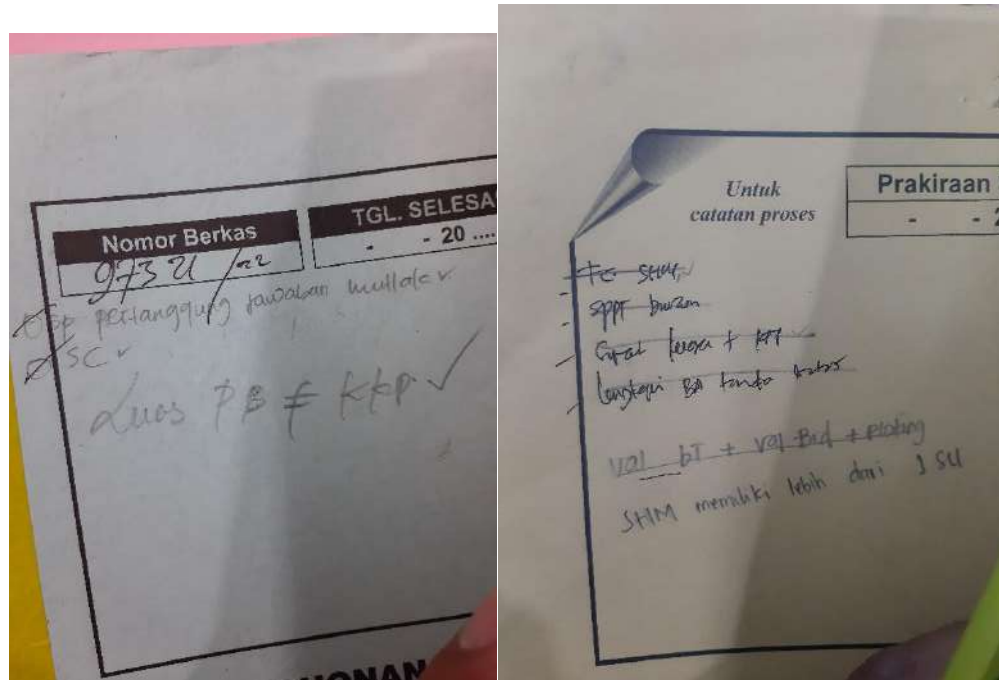 Nomor Berkas
97321/22
TGL. SELESA
- - 20 ....
Sp pertanggung jawaban mutlak ✓
SC ✓
Luas PB ≠ KKP ✓
HONAN
Untuk
catatan proses
Prakiraan
- -
- FC SHM ✓
- SPPT
- Surat kuasa + KTP ✓
- Lengkapi BA tanda batas
Val BT + Val Bid + Ploting
SHM memiliki lebih dari 1 SU